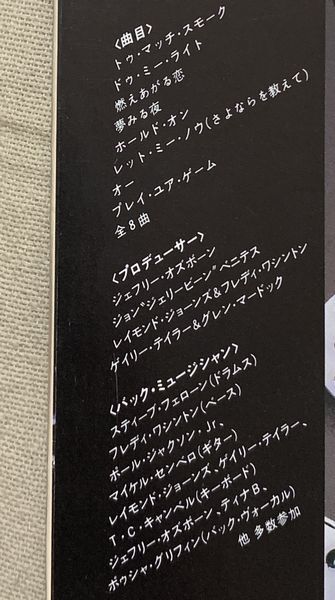 〈曲目〉
トゥ・マッチ・スモーク
ドゥ・ミー・ライト
燃えあがる恋
夢みる夜
ホールド・オン
レット・ミー・ノウ(さよならを教えて)
オー
プレイ・ユア・ゲーム
全8曲
〈プロデューサー〉
ジェフリー・オズボーン
ジョン“ジェリービーン”ベニテス
レイモンド・ジョーンズ&フレディ・ワシントン
ゲイリー・テイラー&グレン・マードック
〈バック・ミュージシャン〉
スティーブ・フェローン(ドラムス)
フレディ・ワシントン(ベース)
ポール・ジャクソン・Jr、
マイケル・センベロ(ギター)
レイモンド・ジョーンズ、ゲイリー・テイラー、
T・C・キャンベル(キーボード)
ジェフリー・オズボーン、ティナB、
ポウシャ・グリフィン(バック・ヴォーカル)
他 多数参加